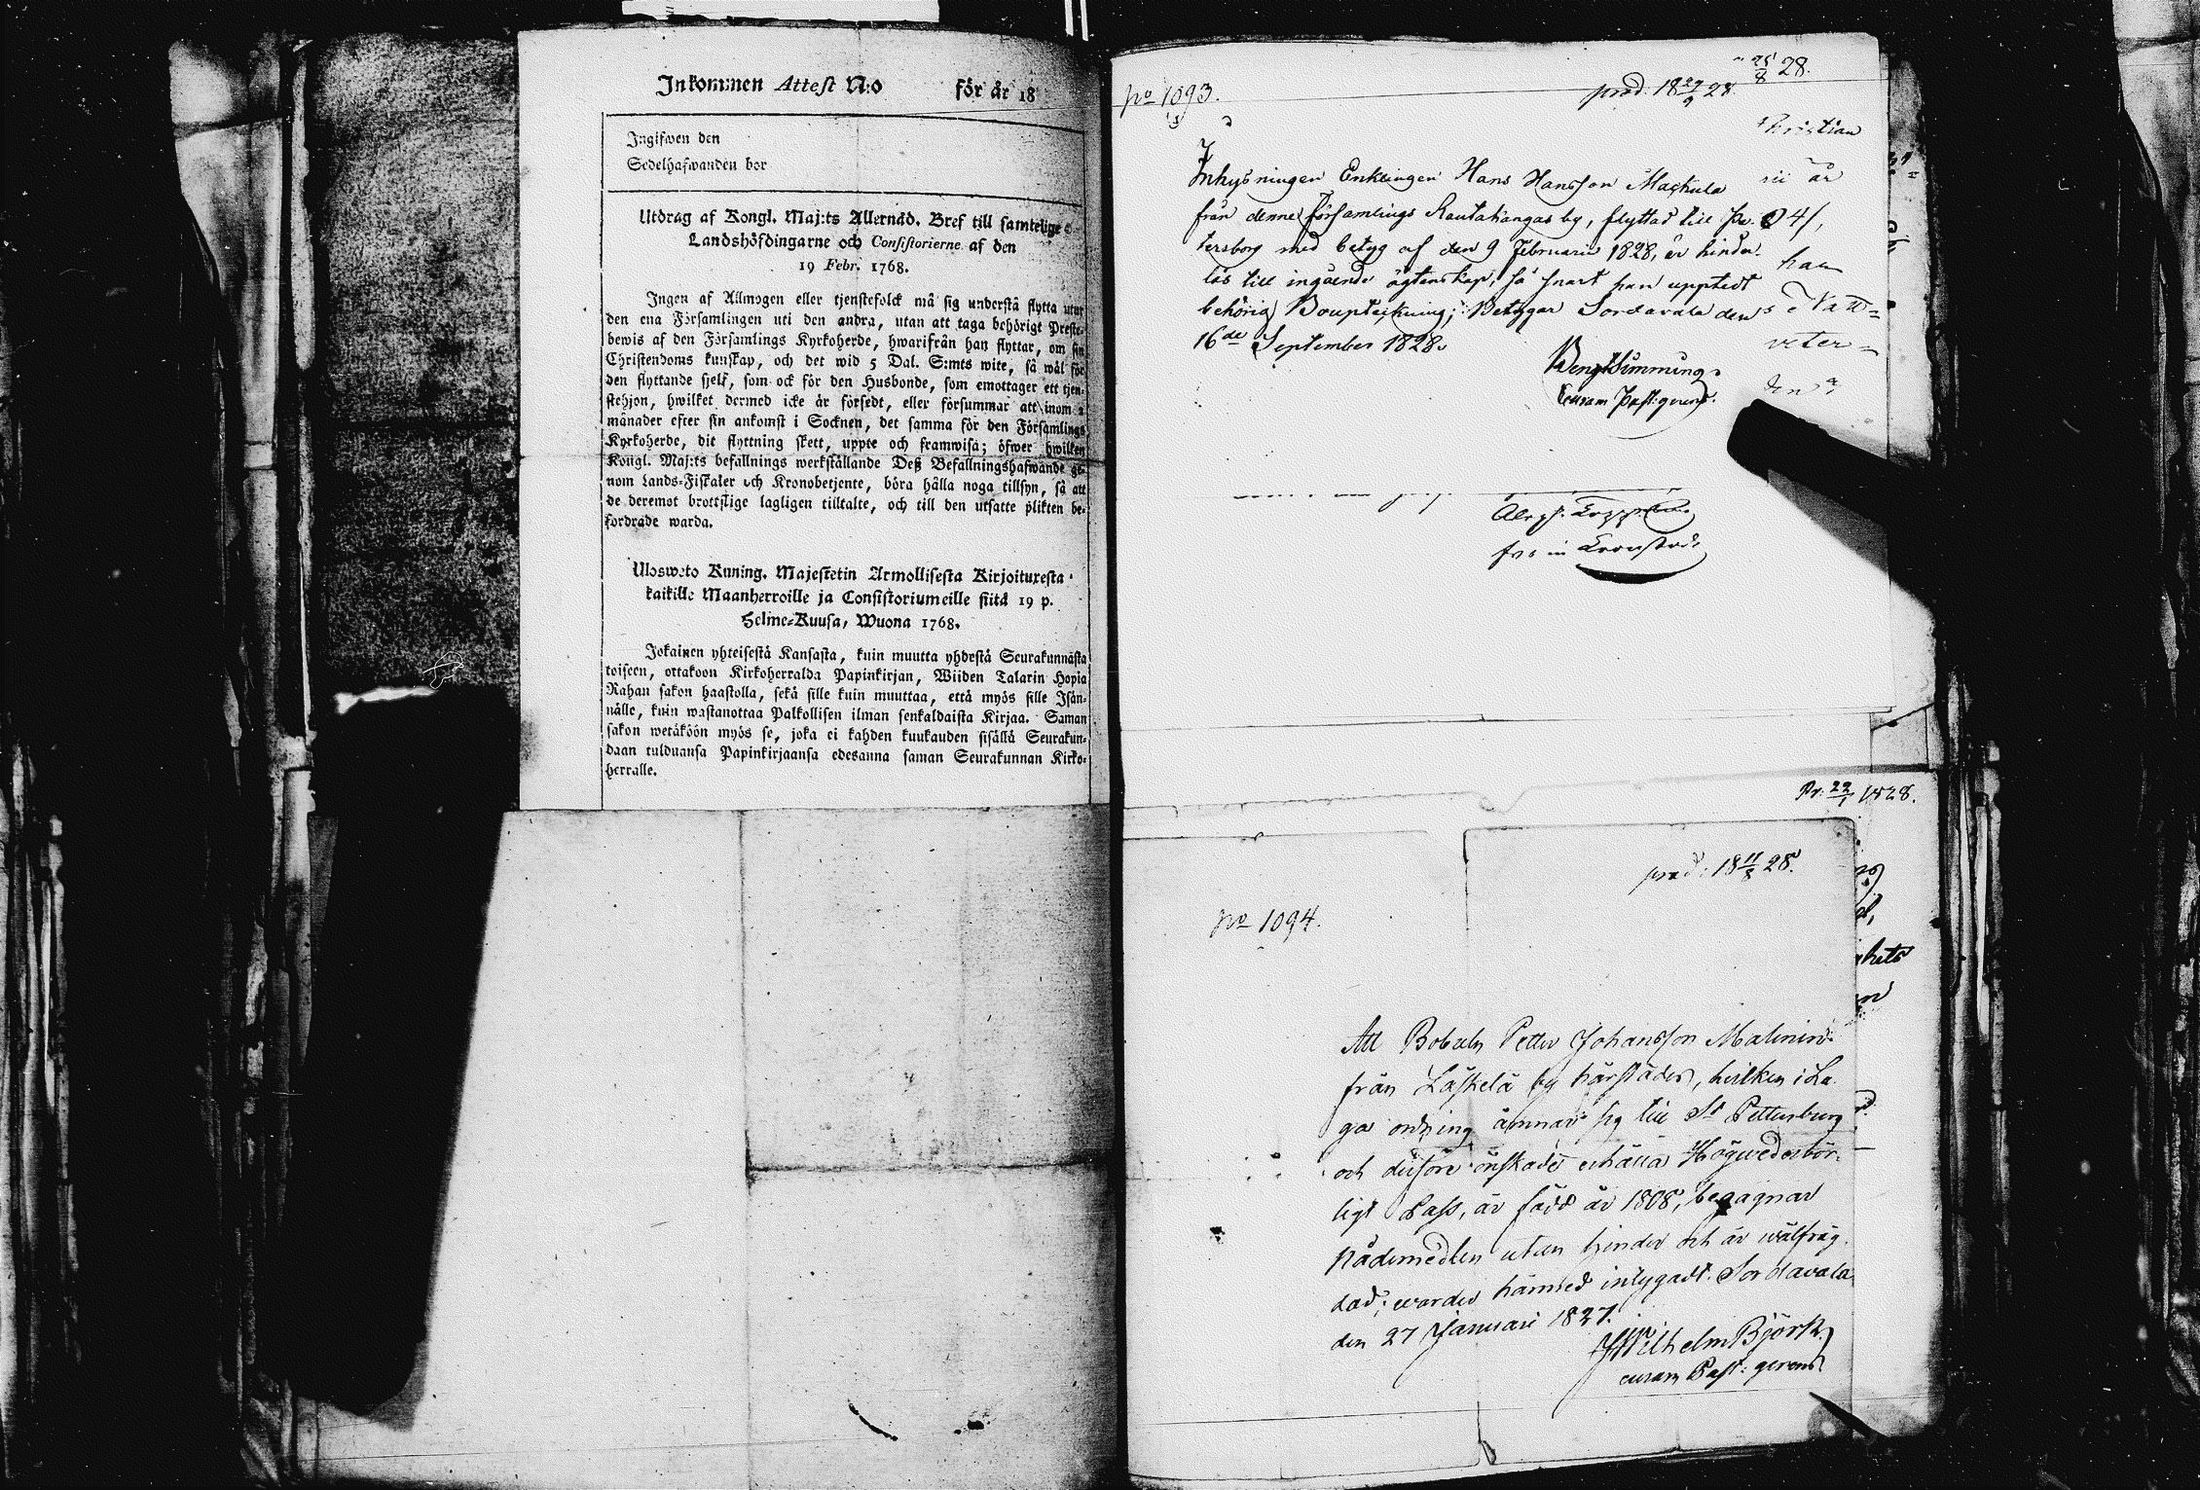 Inkommen Attest N:o för år 18
Ingifwen den
Sedelhafwanden bor
Utdrag af Kongl. Maj:ts Allernåd. Bref till samtelige
Landshöfdingarne och Consistorierne af den
19 Febr. 1768.
Ingen af Allmogen eller tjenstefolck må sig understå flytta utur
den ena Församlingen uti den andra, utan att taga behörigt Preste-
bewis af den Församlings Kyrkoherde, hwarifrån han flyttar, om sin
Christendoms kunskap, och det wid 5 Dal. S:mts wite, så wäl för
den flyttande sjelf, som ock för den Husbonde, som emottager ett tjen-
stehjon, hwilket dermed icke är försedt, eller försummar att inom 2
månader efter sin ankomst i Socknen, det samma för den Församlings
Kyrkoherde, dit flyttning skett, uppte och framwisa; öfwer hwilken
Kongl. Maj:ts befallnings werkställande Deß Befallningshafwande ge-
nom Lands-Fiskaler och Kronobetjente, böra hålla noga tillsyn, så att
de deremot brottslige lagligen tilltalte, och till den utsatte plikten be-
fordrade warda.
Uloswето Kuning. Majestetin Armollisesta Kirjoituxesta
kaikille Maanherroille ja Consistoriumeille siitä 19 p.
Helme-Kuusa, Wuona 1768.
Jokainen yhteisestä Kansasta, kuin muutta yhdestä Seurakunnasta
toiseen, ottakoon Kirkoherralda Papinkirjan, Wiiden Talarin Hopia
Rahan sakon haastolla, sekä sille kuin muuttaa, että myös sille Isän-
nälle, kuin wastanottaa Palkollisen ilman senkaldaista Kirjaa. Saman
sakon wetäköön myös se, joka ei kahden kuukauden sisällä Seurakun-
daan tulduansa Papinkirjaansa edesanna saman Seurakunnan Kirko-
herralle.
25/8 28.
No 1093.
prod: 18 27/9 28
Christian
Inhysningen Enklingen Hans Hansson Mackula
från denne Församlings Rautakangas by, flyttad till Pe-
tersborg med betyg af den 9 Februarii 1828, är hinder-
lös till ingående ägtenskap, så snart han uppted
behörig Bouptekning; Betygar Sordavala den
16de September 1828.
Bengt Simming
Curam Past: gerens.
år
41,
han
Natt=
veter=
den
in Kronstadt
Pr: 22/1 1828.
prod: 18 11/8 28.
No 1094.
Att Bobeln Petter Johansson Malinin
från Läskelä by härstädes, hvilken i La-
ga ordning ämnar sig till St Pettersburg
och dessföre önskade erhålla Högwederbör-
ligt Pass, är född år 1808, begagnar
Nådemedlen utan hinder och är wälfräg-
dad; varder härmed intygadt. Sordavala
den 27 Januari 1827.
J Wilhelm Björk
curam Past: gerens